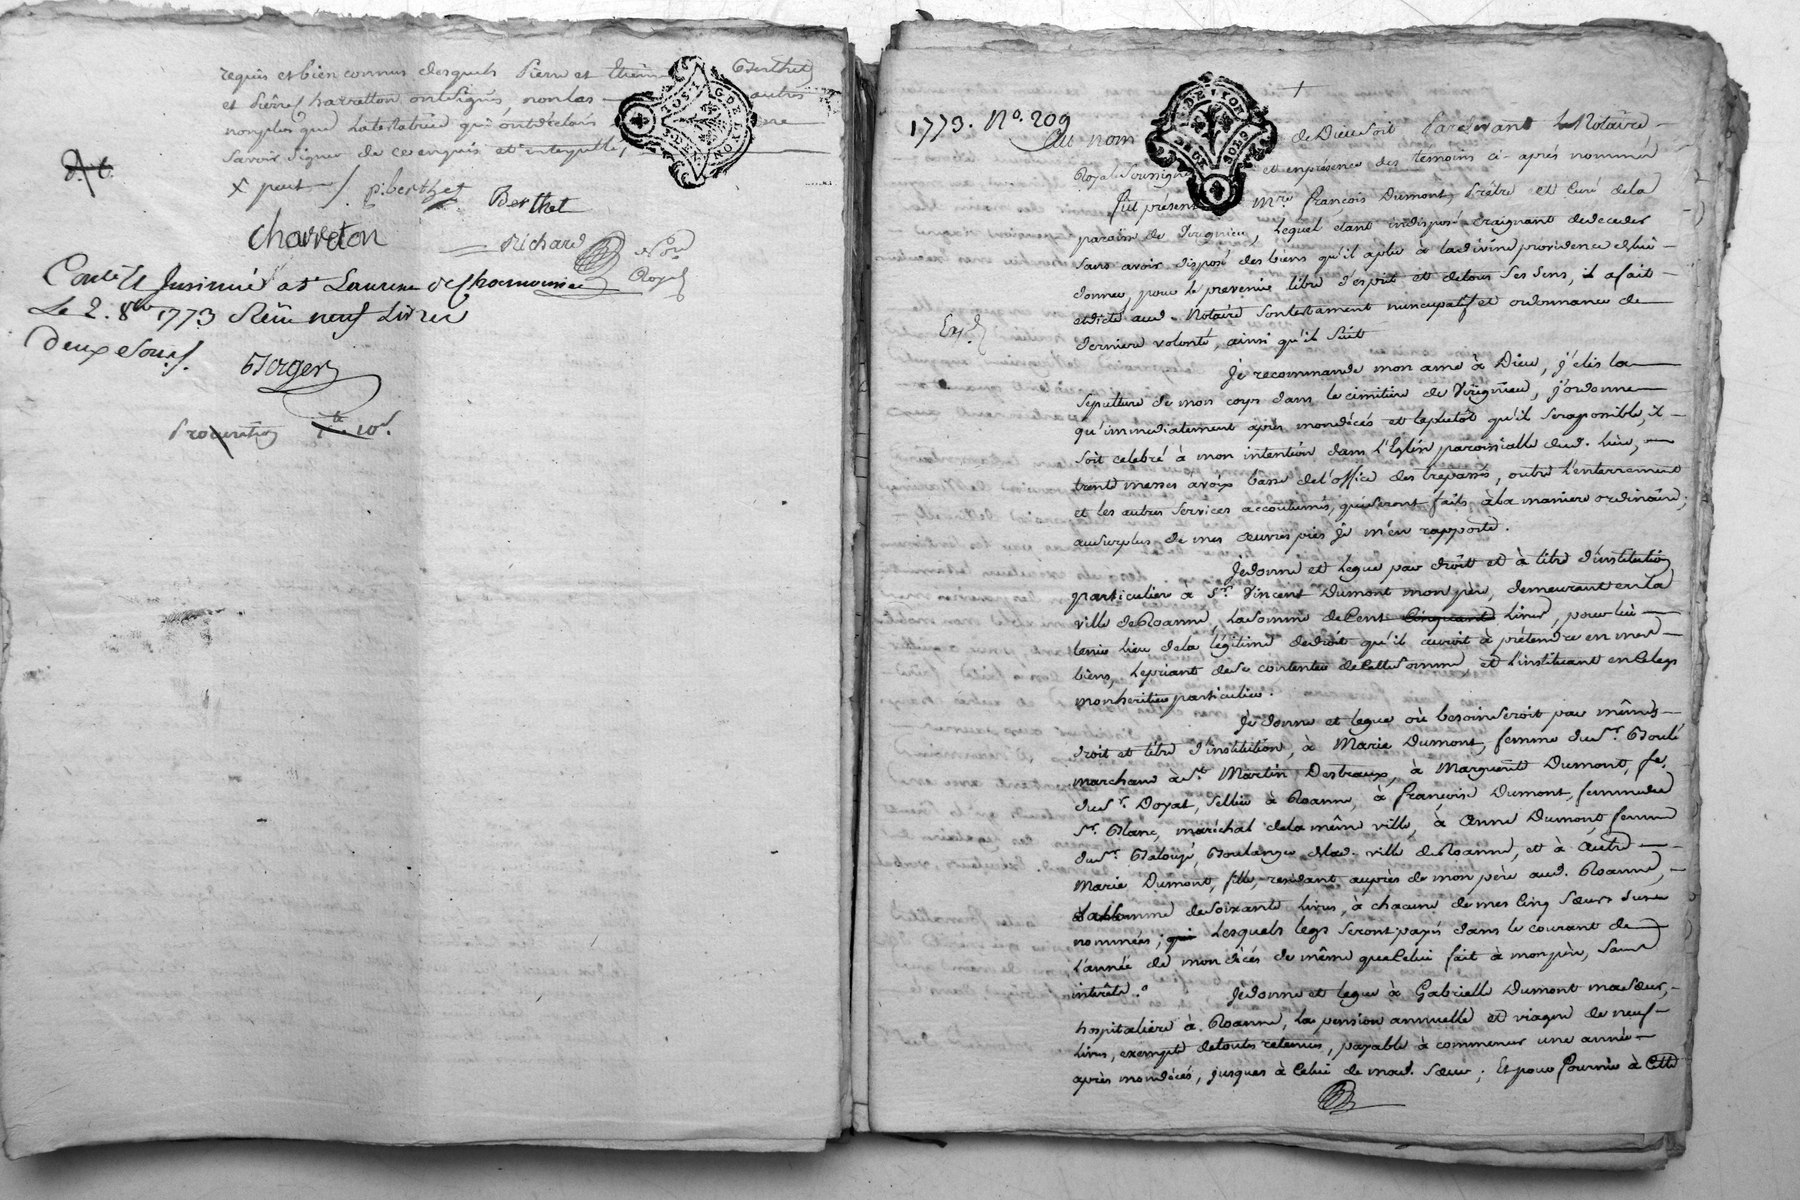 requis et bien connus desquels Pierre et Berthet
et Pierre Charretton ont signés, non les autres
non plus que la testatrice qui ont déclaré ne
savoir signer de ce enquis et interpellé,
p. berthet
Berthet
Charreton
Richard
Nre
Royal
Con.lé & Insinué a St Laurent de Chamousset
Le 2. 8bre 1773 Reçu neuf Livres
deux sous
Berger
1773. No. 209
Au nom de Dieu soit Pardevant le Notaire
Royal soussigné et en présence des temoins ci-après nommés
fut present Mre François Dumont, Prêtre et Curé de la
paroisse de Virignieu, lequel etant indisposé craignant de deceder
sans avoir disposé des biens qu'il a plu à la divine providence de lui
donner, pour le prevenir libre d'esprit et de tous ses sens, il a fait
et dicté aud. Notaire son testament nuncupatif et ordonnance de
derniere volonté, ainsi qu'il suit
Exp.
Je recommande mon ame à Dieu, j'elis la
sepulture de mon corps dans le cimitiere de Virignieu, j'ordonne
qu'immediatement après mon décés et le plutôt qu'il sera possible, il
soit celebré à mon intention dans l'Eglise paroissialle dud. lieu,
trente messes à voix basse de l'office des trepassés, outre l'enterrement
et les autres services accoutumés, qui seront faits à la maniere ordinaire;
au surplus de mes œuvres pies je m'en rapporte.
Je donne et legue par droit et à titre d'institution
particuliere a Sr. Vincent Dumont mon père, demeurant en la
ville de Roanne, la somme de Cent cinquante Livres, pour lui
tenir lieu de la légitime de droit qu'il auroit à prétendre en mes
biens, le priant de se contenter de Cette somme et l'instituant en ce legs
mon heritier particulier.
Je donne et legue où besoin seroit par mêmes
droit et titre d'institution, à Marie Dumont, femme du Sr. Boulé
marchand à St. Martin Destreaux, à Marguerite Dumont, fe.
du Sr. Doyat, sellier à Roanne, à Françoise Dumont, femme du
Sr. Blanc, maréchal de la même ville, à Anne Dumont, femme
du Sr. Balouzé, Boulanger de lad. ville de Roanne, et à Autre
Marie Dumont, fille, residant auprès de mon père aud. Roanne,
la somme de soixante Livres, à chacune de mes Cinq Sœurs susd.
nommées; qui Lesquels legs seront payés dans le courant de
l'année de mon décés de même que Celui fait à mon père, sans
intérêts.
Je donne et legue à Gabrielle Dumont ma Sœur,
hospitaliere à Roanne, la pension annuelle et viagere de neuf
Livres, exempte de toutes retenues, payable à commencer une année
après mon décés, jusques à Celui de mad. Sœur; Et pour fournir à Cette